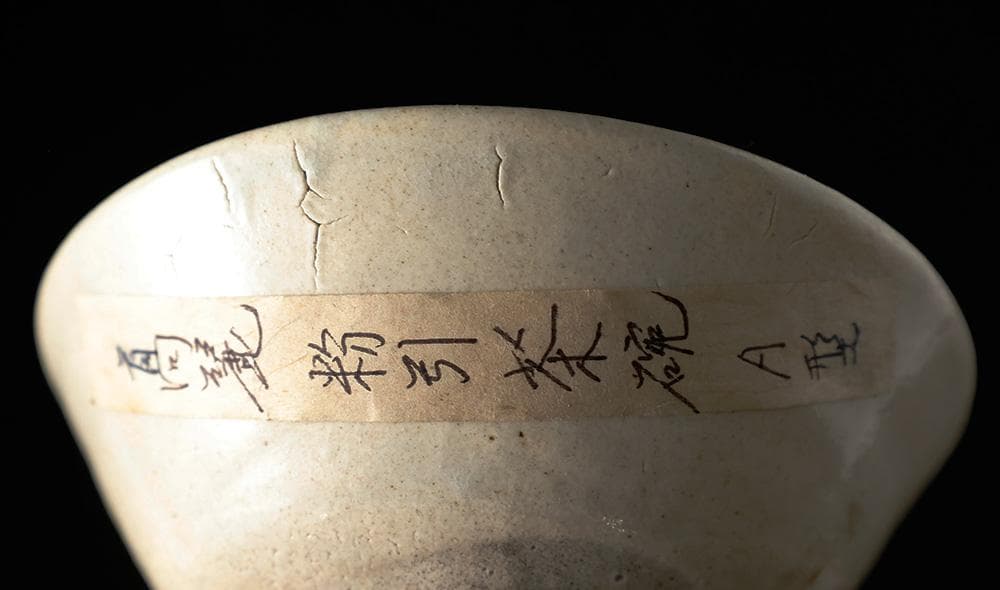 高麗 粉引 茶碗 A型